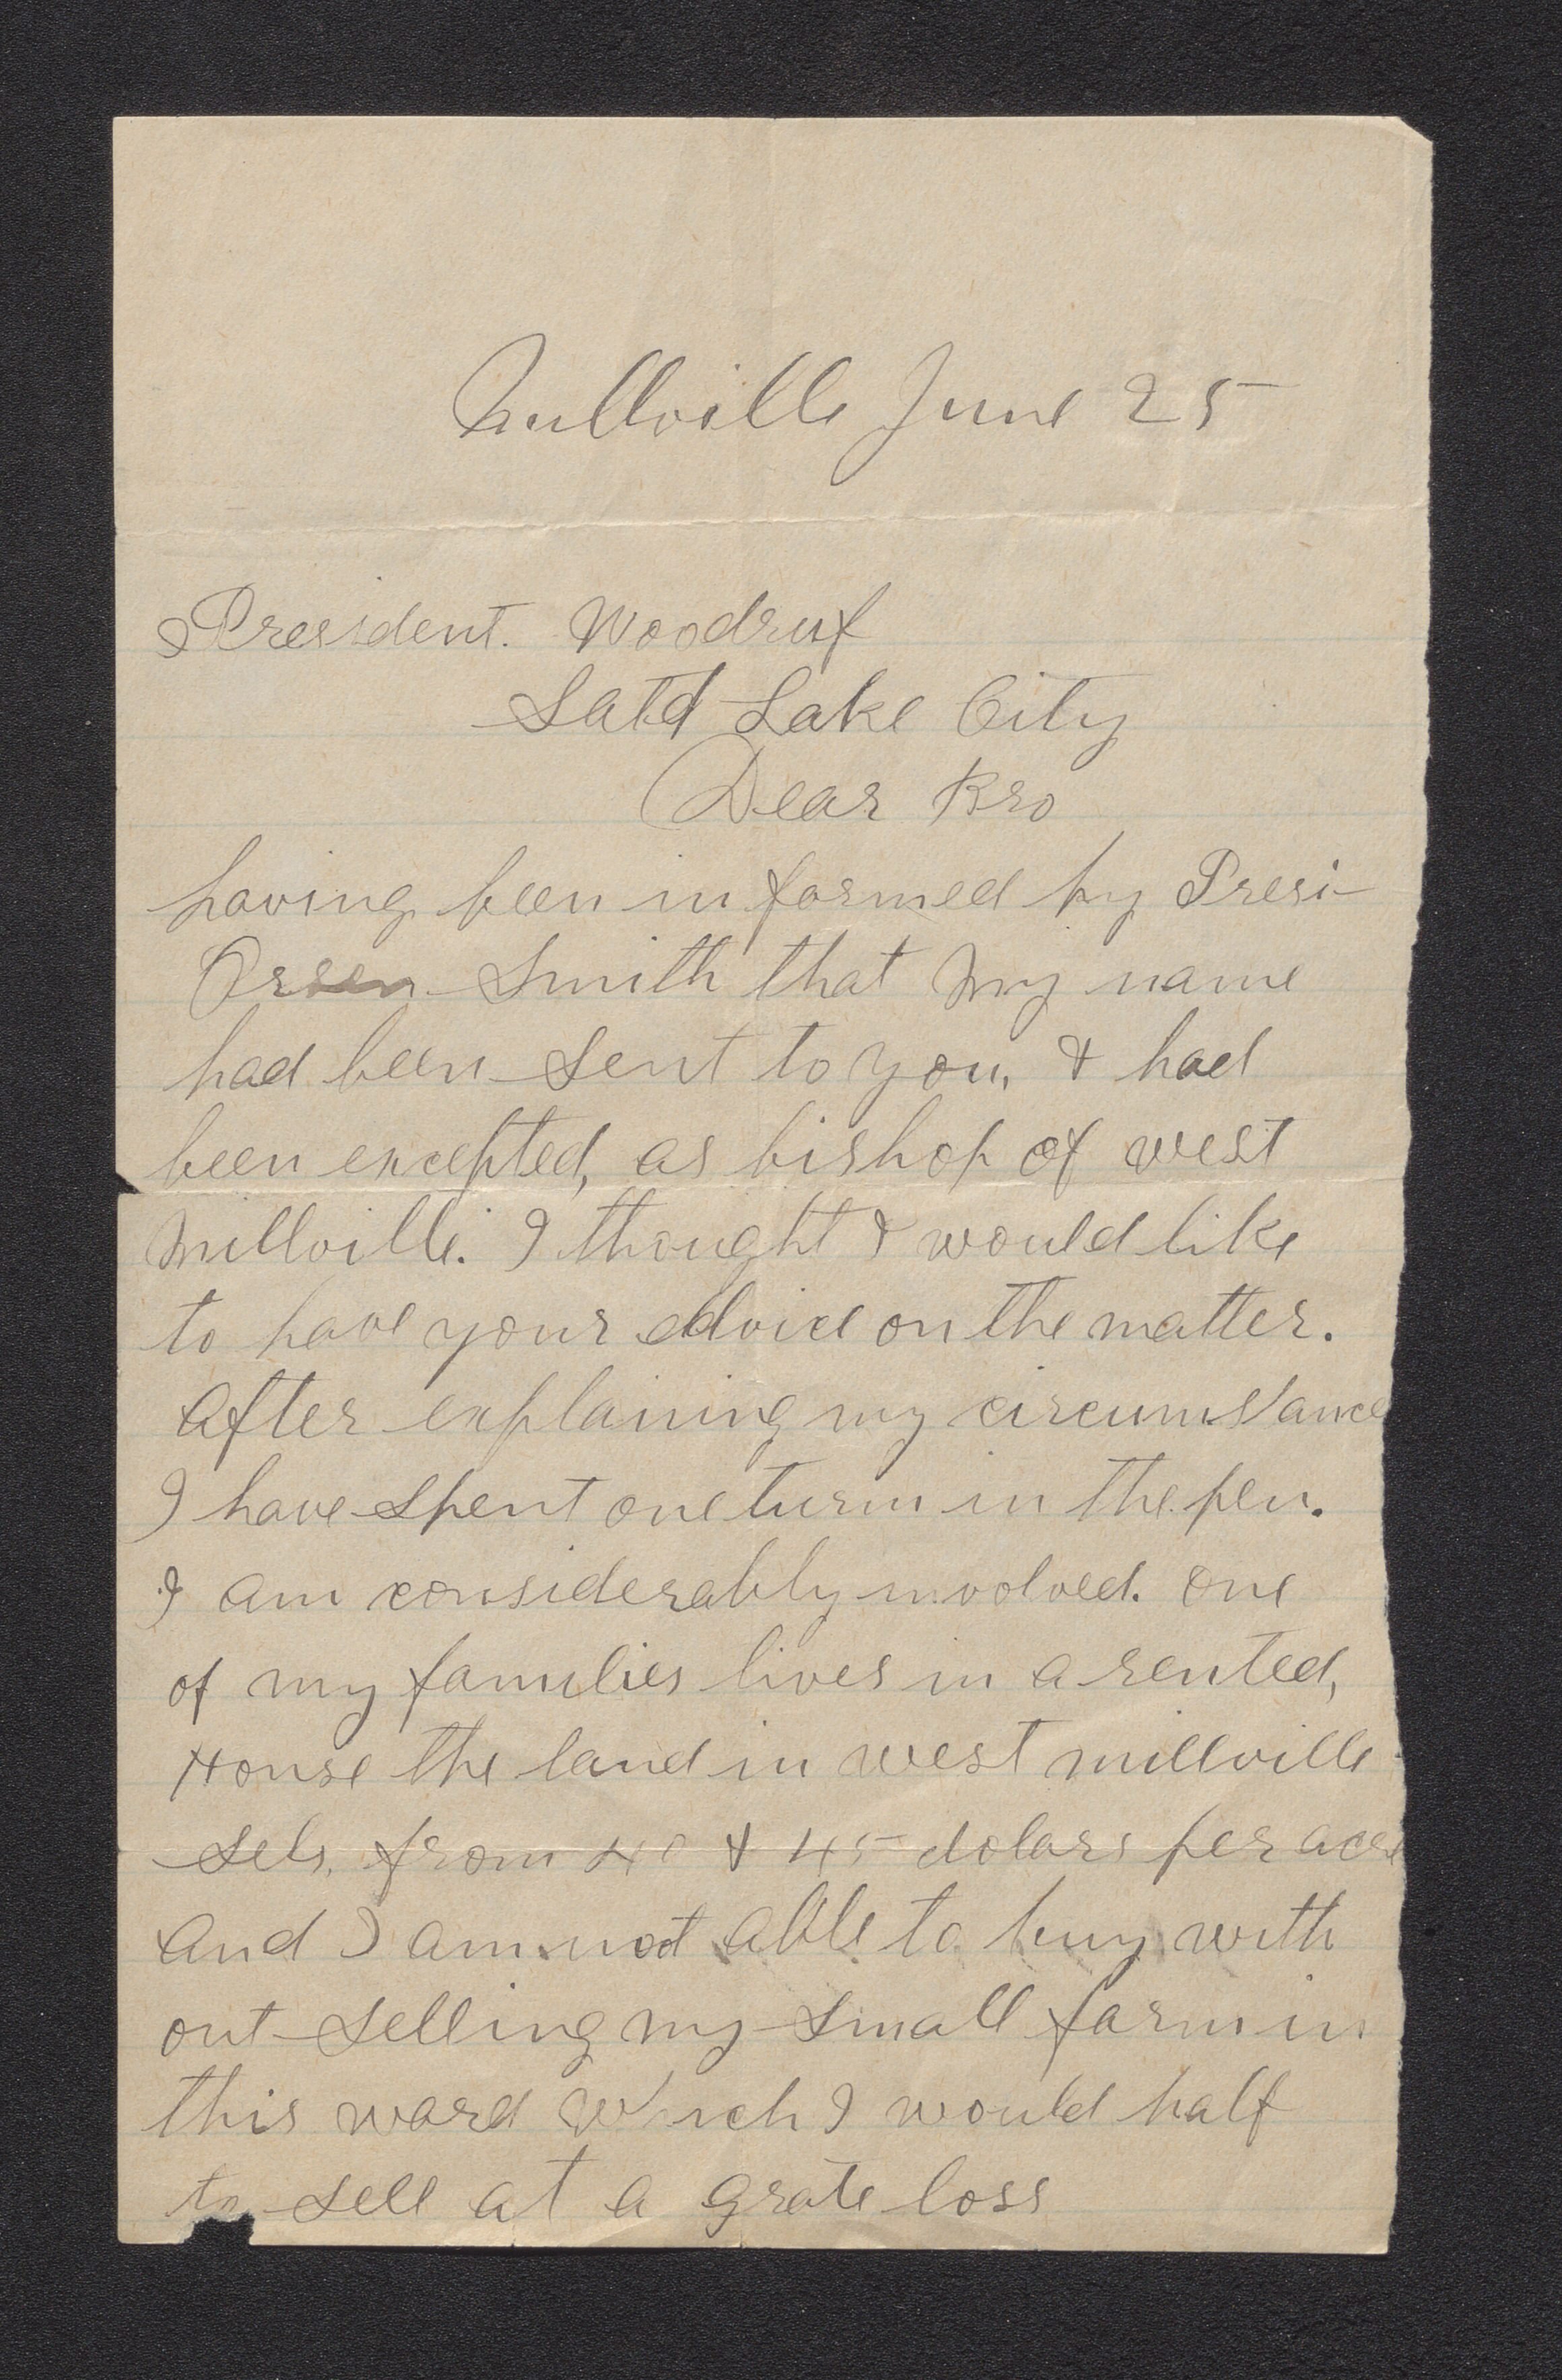 Millville June 25
President. Woodruf
Satd Lake City
Dear Bro
having been informed by Presi-
Orsen Smith that my name
had been Sent to you, & had
been excepted, as bishop of west
Millville. I thought I would like
to have your advice on the matter.
After explaining my circumstance
I have Spent one turm in the pen.
I am considerably involved. one
of my families lives in a rented,
House the land in west millville
Sels, from 40 & 45 dolars per acre
And I am not able to buy with
out Selling my Small farm in
this ward Which I would half
to Sell at a grate loss